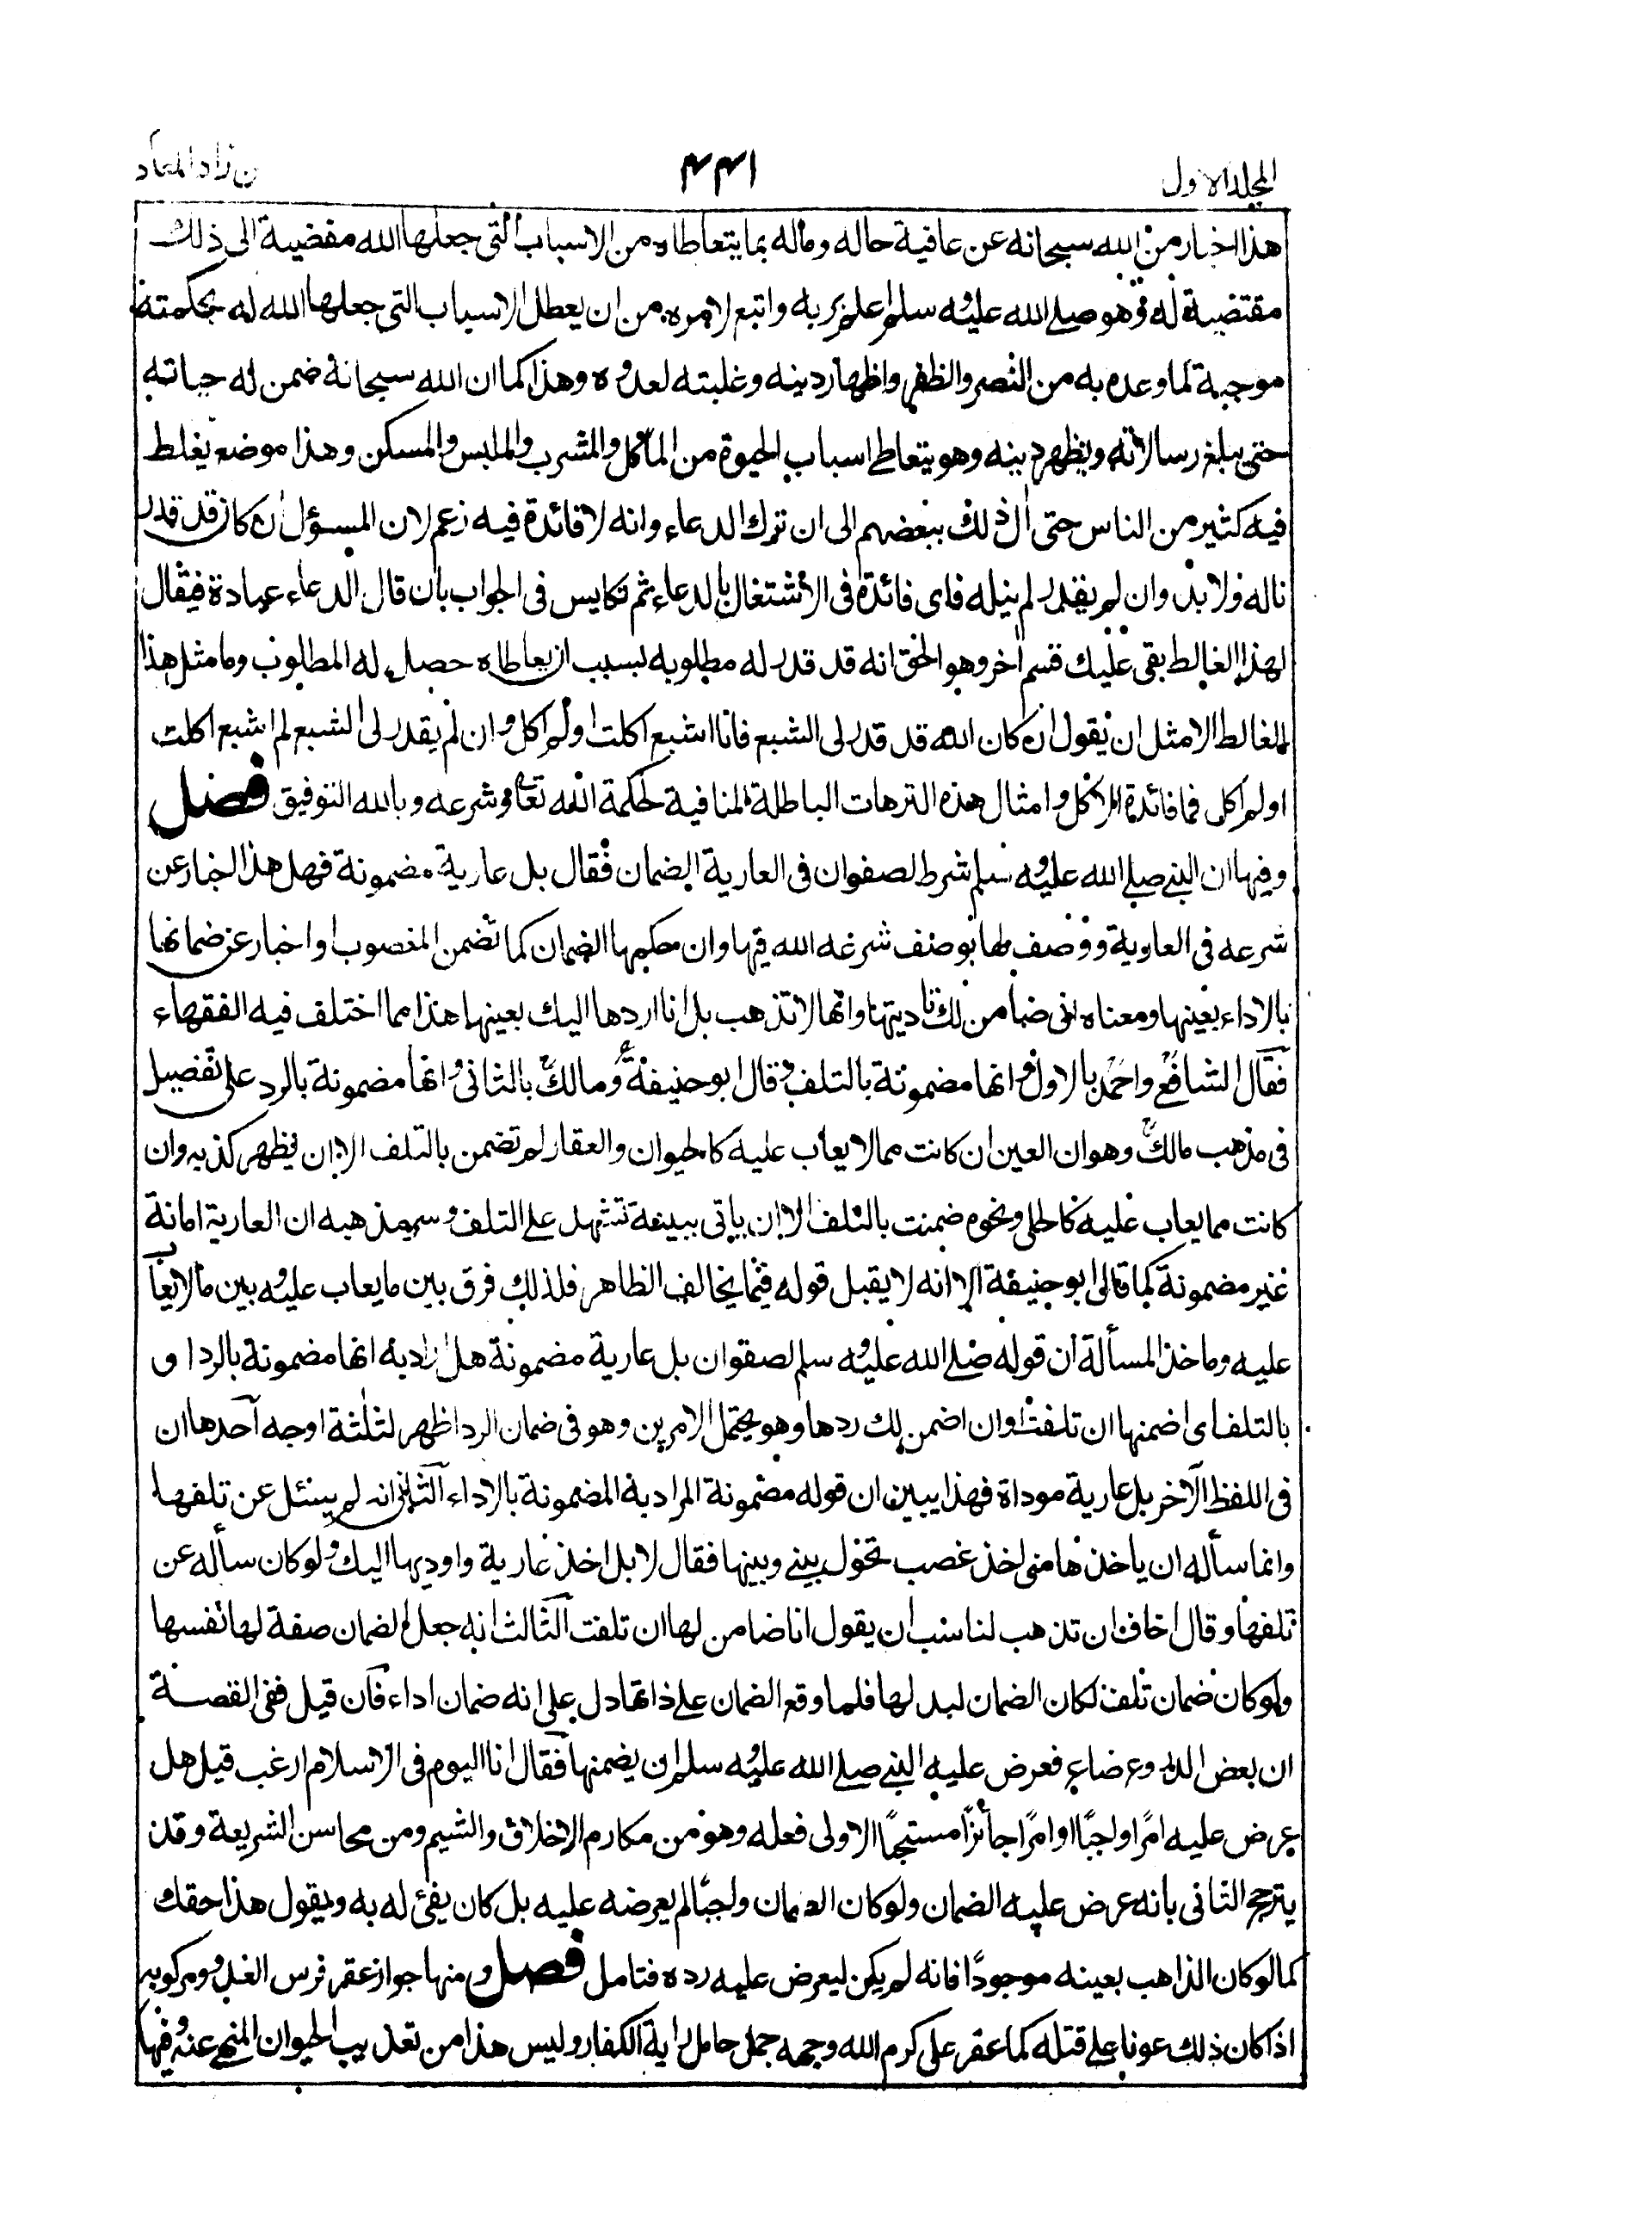 المجلد الاول
٤٤١
من زاد المعاد
هذا اخبار من الله سبحانه عن عاقبة حاله وماله بما يتعاطاه من الاسباب التى جعلها الله مفضية الى ذلك
مقتضية له وهو صلے الله عليه وسلم اعلم بربه واتبع لامره من ان يعطل الاسباب التى جعلها الله له بحكمته
موجبة لما وعده به من النصر والظفر واظهار دينه وغلبته لعدوه وهذا كما ان الله سبحانه ضمن له حياته
حتى يبلغ رسالاته ويظهر دينه وهو يتعاطے اسباب الحيوة من المأكل والمشرب والملبس والمسكن وهذا موضع يغلط
فيه كثير من الناس حتى آل ذلك ببعضهم الى ان ترك الدعاء وانه لا فائدة فيه زعم لان المسؤل ان كان قد قدر
ناله ولا بد وان لم يقدر لم ينله فاى فائدة فى الاشتغال بالدعاء ثم تكايس فى الجواب بان قال الدعاء عبادة فيقال
لهذا الغالط بقى عليك قسم اخر وهو الحق انه قد قدر له مطلوبه بسبب ان يعاطاه حصل له المطلوب وما مثل هذا
الغالط الا مثل ان يقول ان كان الله قد قدر لى الشبع فانا اشبع اكلت اولم اكل وان لم يقدر لى الشبع لم اشبع اكلت
اولم اكل فما فائدة الاكل وامثال هذه الترهات الباطلة المنافية لحكمة الله تعا وشرعه وبالله التوفيق فصل
وفيها ان النبے صلے الله عليه وسلم شرط لصفوان فى العارية الضمان فقال بل عارية مضمونة فهل هذا اخبار عن
شرعه فى العارية ووصف لها بوصف شرعه الله فيها وان حكمها الضمان كما تضمن المغصوب او اخبار عن ضمانها
بالاداء بعينها ومعناه انى ضامن لك تاديتها وانها لا تذهب بل انا اردها اليك بعينها هذا مما اختلف فيه الفقهاء
فقال الشافعى واحمد بالاول وانها مضمونة بالتلف وقال ابو حنيفة ومالك بالثانى وانها مضمونة بالرد على تفصيل
فى مذهب مالك وهو ان العين ان كانت مما لا يغاب عليه كالحيوان والعقار لم تضمن بالتلف الا ان يظهر كذبه وان
كانت مما يغاب عليه كالحلى ونحوه ضمنت بالتلف الا ان ياتى ببينة تشهد علے التلف وسر مذهبه ان العارية امانة
غير مضمونة كما قال ابو حنيفة الا انه لا يقبل قوله فيما يخالف الظاهر فلذلك فرق بين ما يغاب عليه وبين ما لا يغاب
عليه وماخذ المسألة ان قوله صلے الله عليه وسلم لصفوان بل عارية مضمونة هل اراد به انها مضمونة بالرد او
بالتلف اى اضمنها ان تلفت او ان اضمن لك ردها وهو يحتمل الامرين وهو فى ضمان الرد اظهر لثلثة اوجه احدها ان
فى اللفظ الآخر بل عارية موداة فهذا يبين ان قوله مضمونة المراد به المضمونة بالاداء الثانى انه لم يسئل عن تلفها
وانما سأله ان ياخذها منى اخذ غصب تحول بينے وبينها فقال لا بل اخذ عارية واوديها اليك ولو كان سأله عن
تلفها وقال اخاف ان تذهب لناسب ان يقول انا ضامن لها ان تلفت الثالث انه جعل الضمان صفة لها نفسها
ولو كان ضمان تلف لكان الضمان لبدلها فلما وقع الضمان علے ذاتها دل على انه ضمان اداء فان قيل ففى القصة
ان بعض الدروع ضاع فعرض عليه النبے صلے الله عليه وسلم ان يضمنها فقال انا اليوم فى الاسلام ارغب قيل هل
عرض عليه امرًا واجبًا او امرًا جائزًا مستحبًا الاولى فعله وهو من مكارم الاخلاق والشيم ومن محاسن الشريعة وقد
يترجح الثانى بانه عرض عليه الضمان ولو كان الضمان واجبًا لم يعرضه عليه بل كان يفى له به ويقول هذا حقك
كما لو كان الذاهب بعينه موجودًا فانه لم يكن ليعرض عليه رده فتامل فصل ومنها جواز عقر فرس العدو ومركوبه
اذا كان ذلك عونا علے قتله كما عقر على كرم الله وجهه جمل حامل راية الكفار وليس هذا من تعذيب الحيوان المنهى عنه وفيها